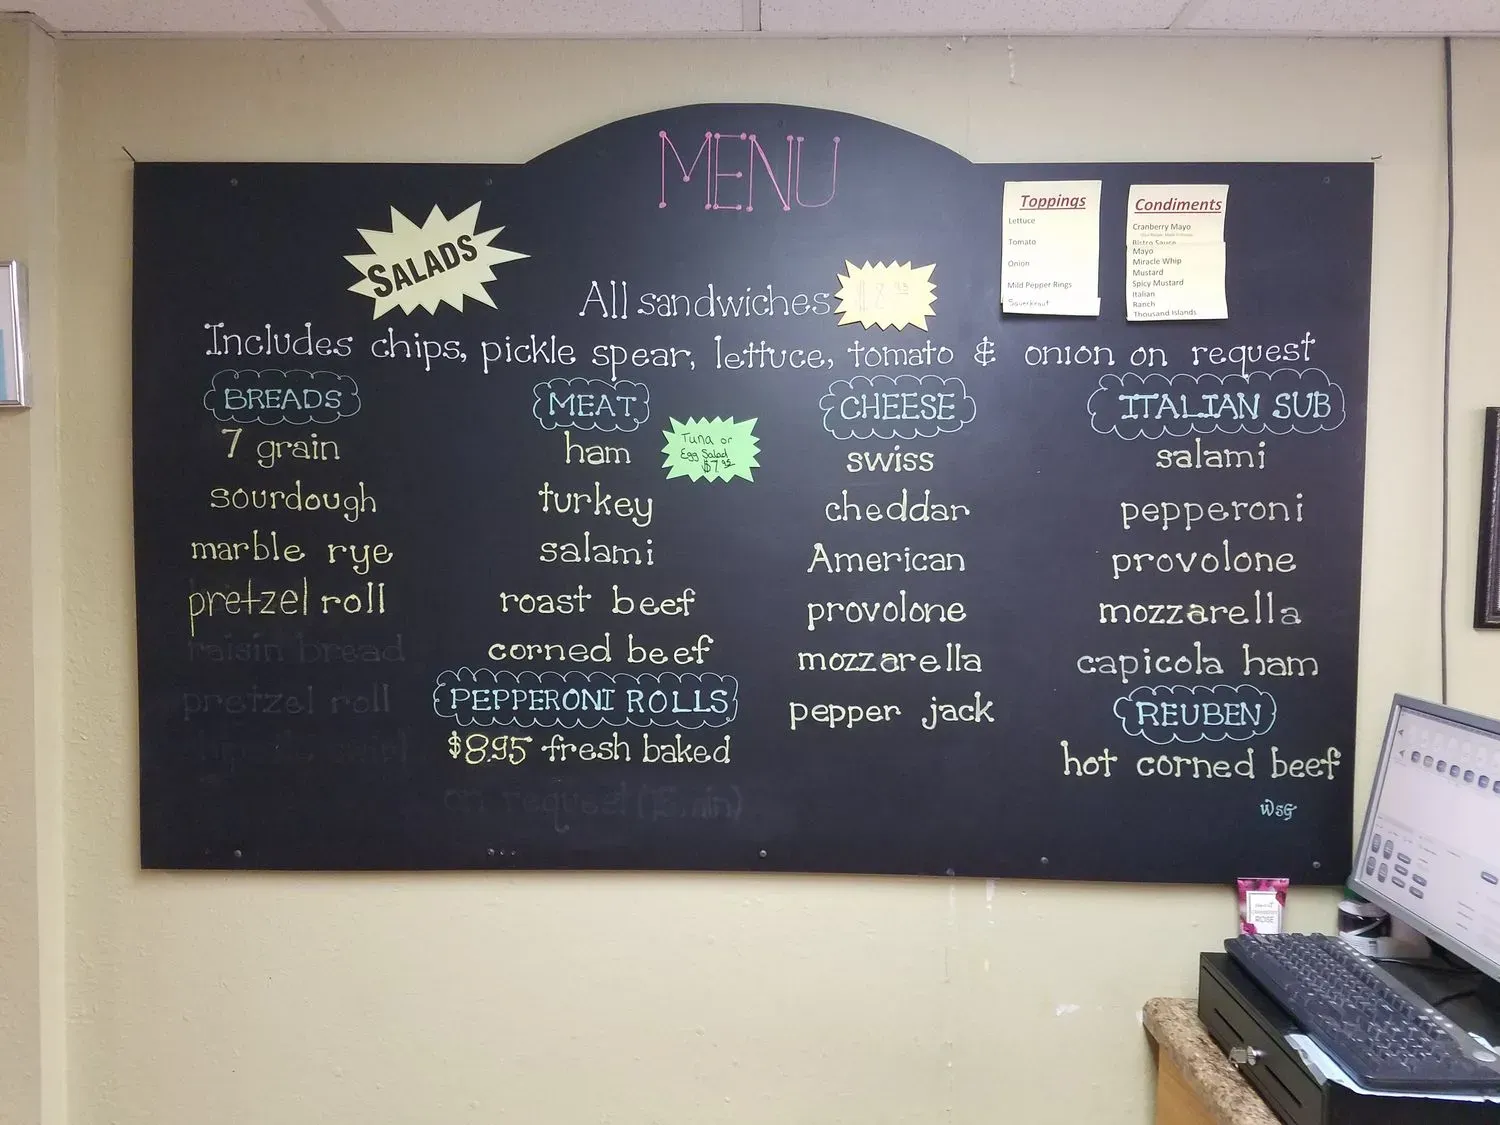 MENU
SALADS
All sandwiches
Includes chips, pickle spear, lettuce, tomato & onion on request
Toppings
Lettuce
Tomato
Onion
Mild Pepper Rings
Sauerkraut
Condiments
Cranberry Mayo
Bistro Sauce
Mayo
Miracle Whip
Mustard
Spicy Mustard
Italian
Ranch
Thousand Islands
BREADS
7 grain
sourdough
marble rye
pretzel roll
raisin bread
pretzel roll
MEAT
ham
turkey
salami
roast beef
corned beef
Tuna or
Egg Salad
$7.95
PEPPERONI ROLLS
$8.95 fresh baked
on request
CHEESE
swiss
cheddar
American
provolone
mozzarella
pepper jack
ITALIAN SUB
salami
pepperoni
provolone
mozzarella
capicola ham
REUBEN
hot corned beef
WSG
ROSE